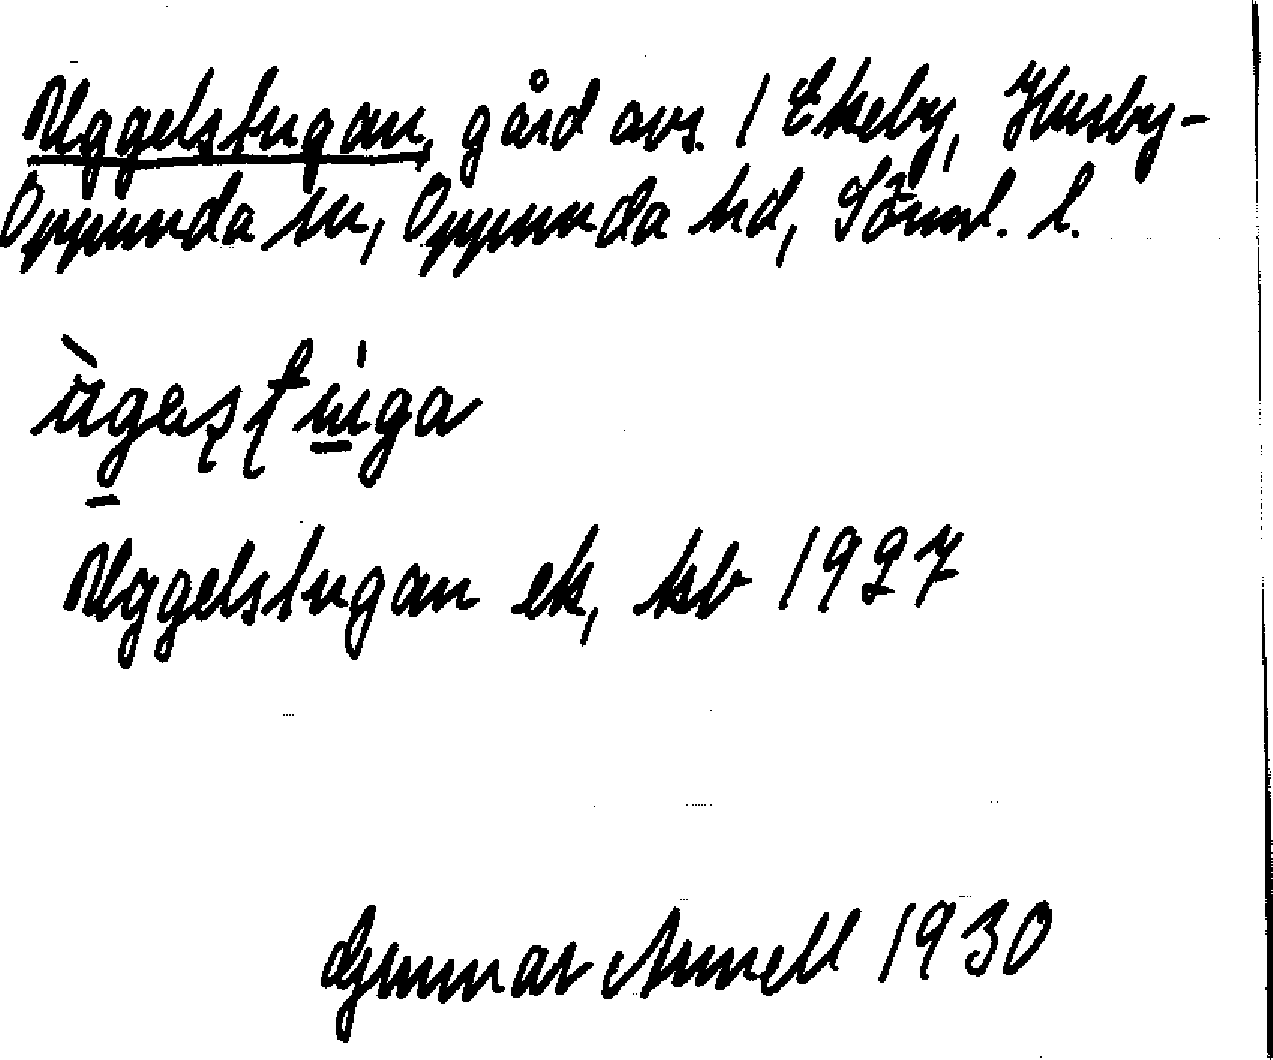 Uggelstugan, gård avs. / Ekeby, Husby-
Oppunda sn, Oppunda hd, Söml. l.
Uggelstugan ek, kb 1927
Gunnar Annell 1930